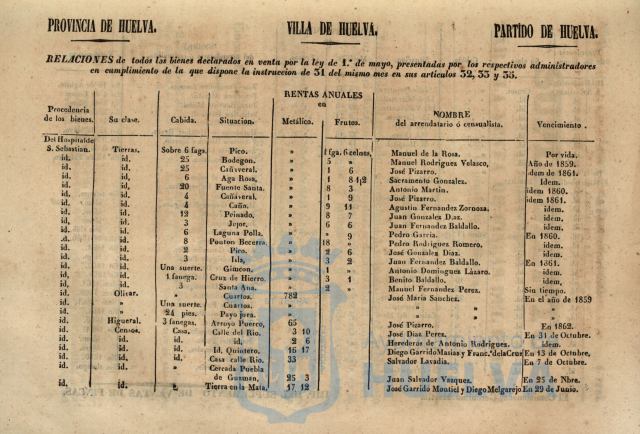 PROVINCIA DE HUELVA. VILLA DE HUELVA. PARTIDO DE HUELVA.
RELACIONES de todos los bienes declarados en venta por la ley de 1.º de mayo, presentadas por los respectivos administradores
en cumplimiento de la que dispone la instruccion de 31 del mismo mes en sus artículos 32, 33 y 35.
RENTAS ANUALES
en
Procedencia de los bienes. Su clase. Cabida. Situacion. Metálico. Frutos. NOMBRE del arrendatario ó censualista. Vencimiento.
Del Hospital de
S. Sebastian. Tierras. Sobre 6 fags. Pico. » 1 fga. 6 celmns, Manuel de la Rosa. Por vida.
id. id. 25 Bodegon. » 5 » Manuel Rodriguez Velasco, Año de 1859.
id. id. 25 Cañaveral. » 1 6 José Pizarro. idem de 1861.
id. id. 6 Aga Rosa, » 1 8 1/2 Sacramento Gonzalez. Idem.
id. id. 20 Fuente Santa. » 8 3 Antonio Martin. idem 1860.
id. id. 4 Cañaveral. » 1 9 José Pizarro. idem 1861.
id. id. 4 Caño. » 9 11 Agustin Fernandez Zornosa. idem.
id. id. 12 Peinado. » 8 7 Juan Gonzalez Diaz. idem.
id. id. 3 Jojar. » 6 6 Juan Fernandez Baldallo. idem.
id. id. 6 Laguna Polla. » » 9 Pedro Garcia. En 1860.
id. id. 8 Ponton Becerra. » 18 » Pedro Rodriguez Romero, idem.
id. id. 2 Pico. » 2 6 José Gonzalez Diaz. idem.
id. id. 3 Isla, » 3 2 Juan Fernandez Baldallo. En 1861.
id. id. Una suerte. Gimeon. » 1 » Antonio Dominguez Lázaro. idem.
id. id. 1 fanega. Cruz de Hierro. » 3 Benito Baldallo. idem.
id. id. 3 Santa Ana. » 2 » Manuel Fernandez Perez. Sin tiempo.
id. Olivar. » Cuartos. 782 José Maria Sanchez. En el año de 1859
id. » Una suerte. Cuartos. » »
id. » 24 pies. Payo jura. » »
id. Higueral. 3 fanegas. Arroyo Puerco, 65 José Pizarro. En 1862.
id. Censos. Casa. Calle del Rio. 3 10 José Diaz Perez. En 31 de Octubre.
id. id. » id. 2 6 Herederas de Antonio Rodriguez. idem.
id. id. » Id, Quintero. 16 17 Diego Garrido Masias y Franc.ª de la Cruz En 13 de Octubre,
id. id. » Casa calle Rio. 33 Salvador Lavadia. En 7 de Octubre.
» Cercada Puebla
id. id. de Guzman, 25 3 Juan Salvador Vazquez. En 25 de Nbre.
id. id. Tierra en la Mata. 17 12 José Garrido Montiel y Diego Melgarejo En 29 de Junio.
HUELVA